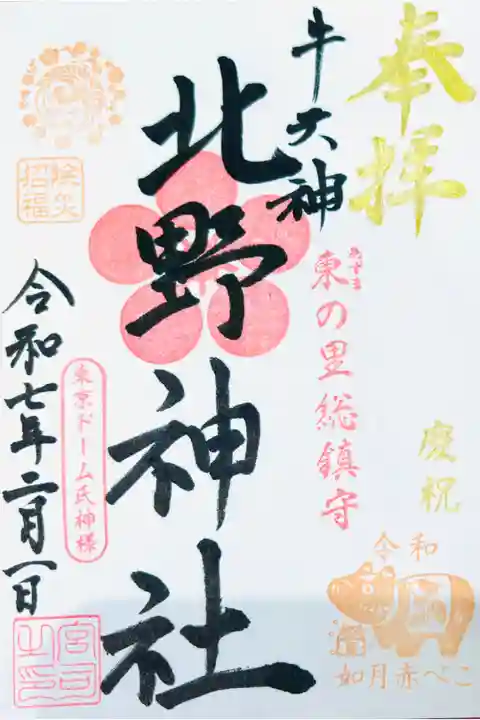 奉拝
慶祝
令和
如月赤べこ
東の里総鎮守
あずま
牛天神
北野神社
除災
招福
東京ドーム氏神様
令和七年二月一日
宮司
之印